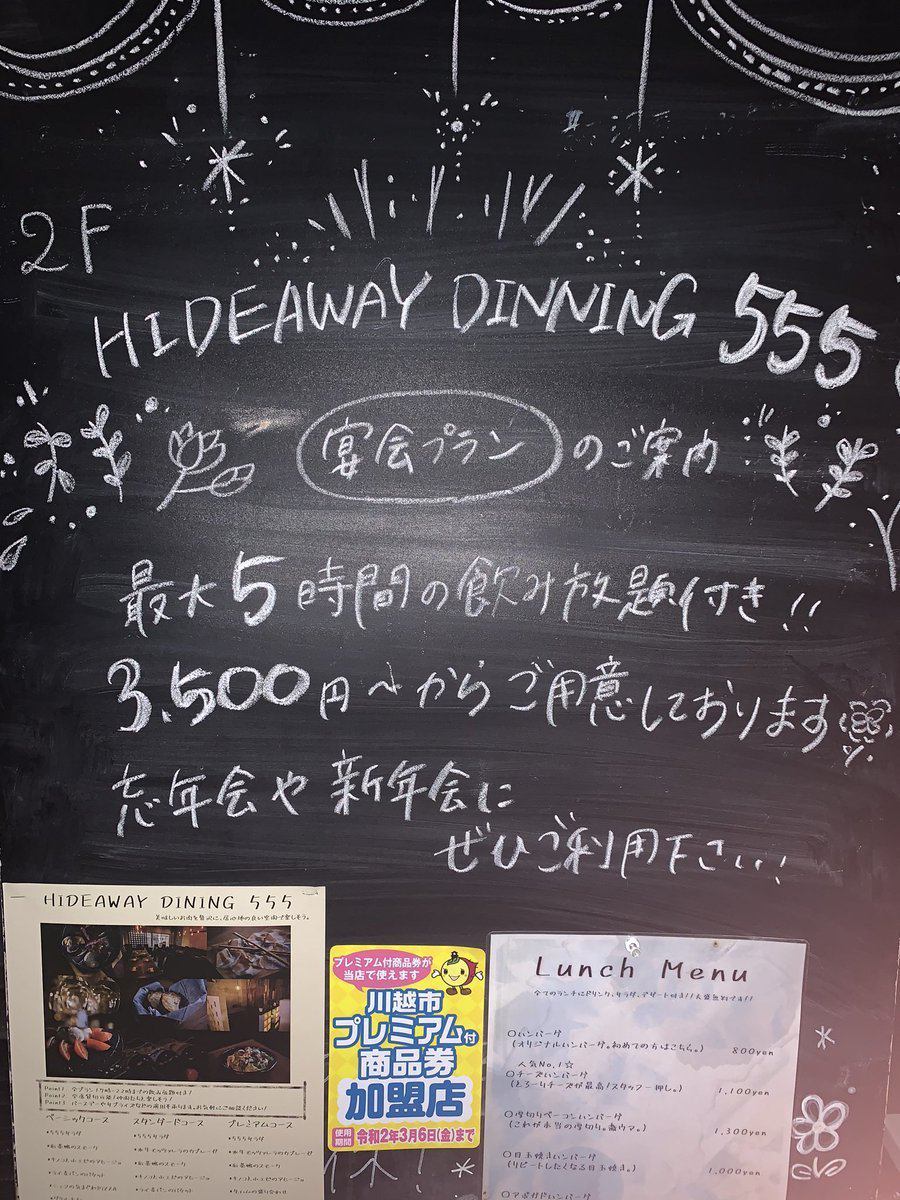 2F
HIDEAWAY DINNING 555
宴会プランのご案内
最大5時間の飲み放題付き!!
3,500円〜からご用意しております
忘年会や新年会に
ぜひご利用下さい!
HIDEAWAY DINING 555
美味しいお肉を贅沢に、居心地の良い空間で楽しそう。
ベーシックコース
スタンダードコース
プレミアムコース
プレミアム付商品券が
当店で使えます
川越市
プレミアム付
商品券
加盟店
使用期間 令和2年3月6日(金)まで
Lunch Menu
全てのランチにドリンク、サラダ、デザート付き!!大盛無料です!!
〇ハンバーグ
(オリジナルハンバーグ。初めての方はこちら。) 800yen
人気No.1☆
〇チーズハンバーグ
(とろーりチーズが最高!スタッフ一押し。) 1,100yen
〇厚切りベーコンハンバーグ
(これが本当の厚切り。激ウマ。) 1,300yen
〇目玉焼きハンバーグ
(リピートしたくなる目玉焼き。) 1,000yen
〇アボカドハンバーグ